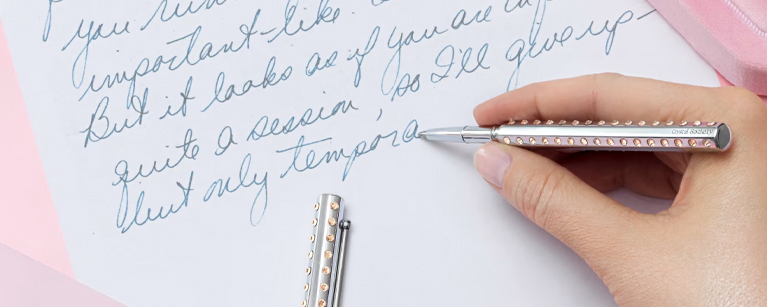 you run
important-like.
But it looks as if you are in
quite a session, so I'll give up-
but only tempora
Crystal Society